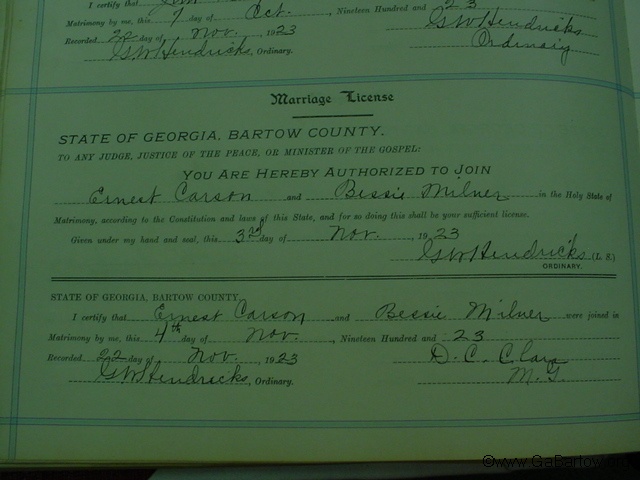 I certify that
Matrimony by me, this 7 day of Oct. , Nineteen Hundred and 23
Recorded 22 day of Nov. , 1923 GW Hendricks
GW Hendricks , Ordinary. Ordinary
Marriage License
STATE OF GEORGIA, BARTOW COUNTY.
TO ANY JUDGE, JUSTICE OF THE PEACE, OR MINISTER OF THE GOSPEL:
YOU ARE HEREBY AUTHORIZED TO JOIN
Ernest Carson and Bessie Milner in the Holy State of
Matrimony, according to the Constitution and laws of this State, and for so doing this shall be your sufficient license.
Given under my hand and seal, this 3rd day of Nov. , 1923
GW Hendricks (L. S.)
ORDINARY.
STATE OF GEORGIA, BARTOW COUNTY
I certify that Ernest Carson and Bessie Milner were joined in
Matrimony by me, this 4th day of Nov. , Nineteen Hundred and 23
Recorded 22 day of Nov. , 1923 D. C.
GW Hendricks , Ordinary. M. G.